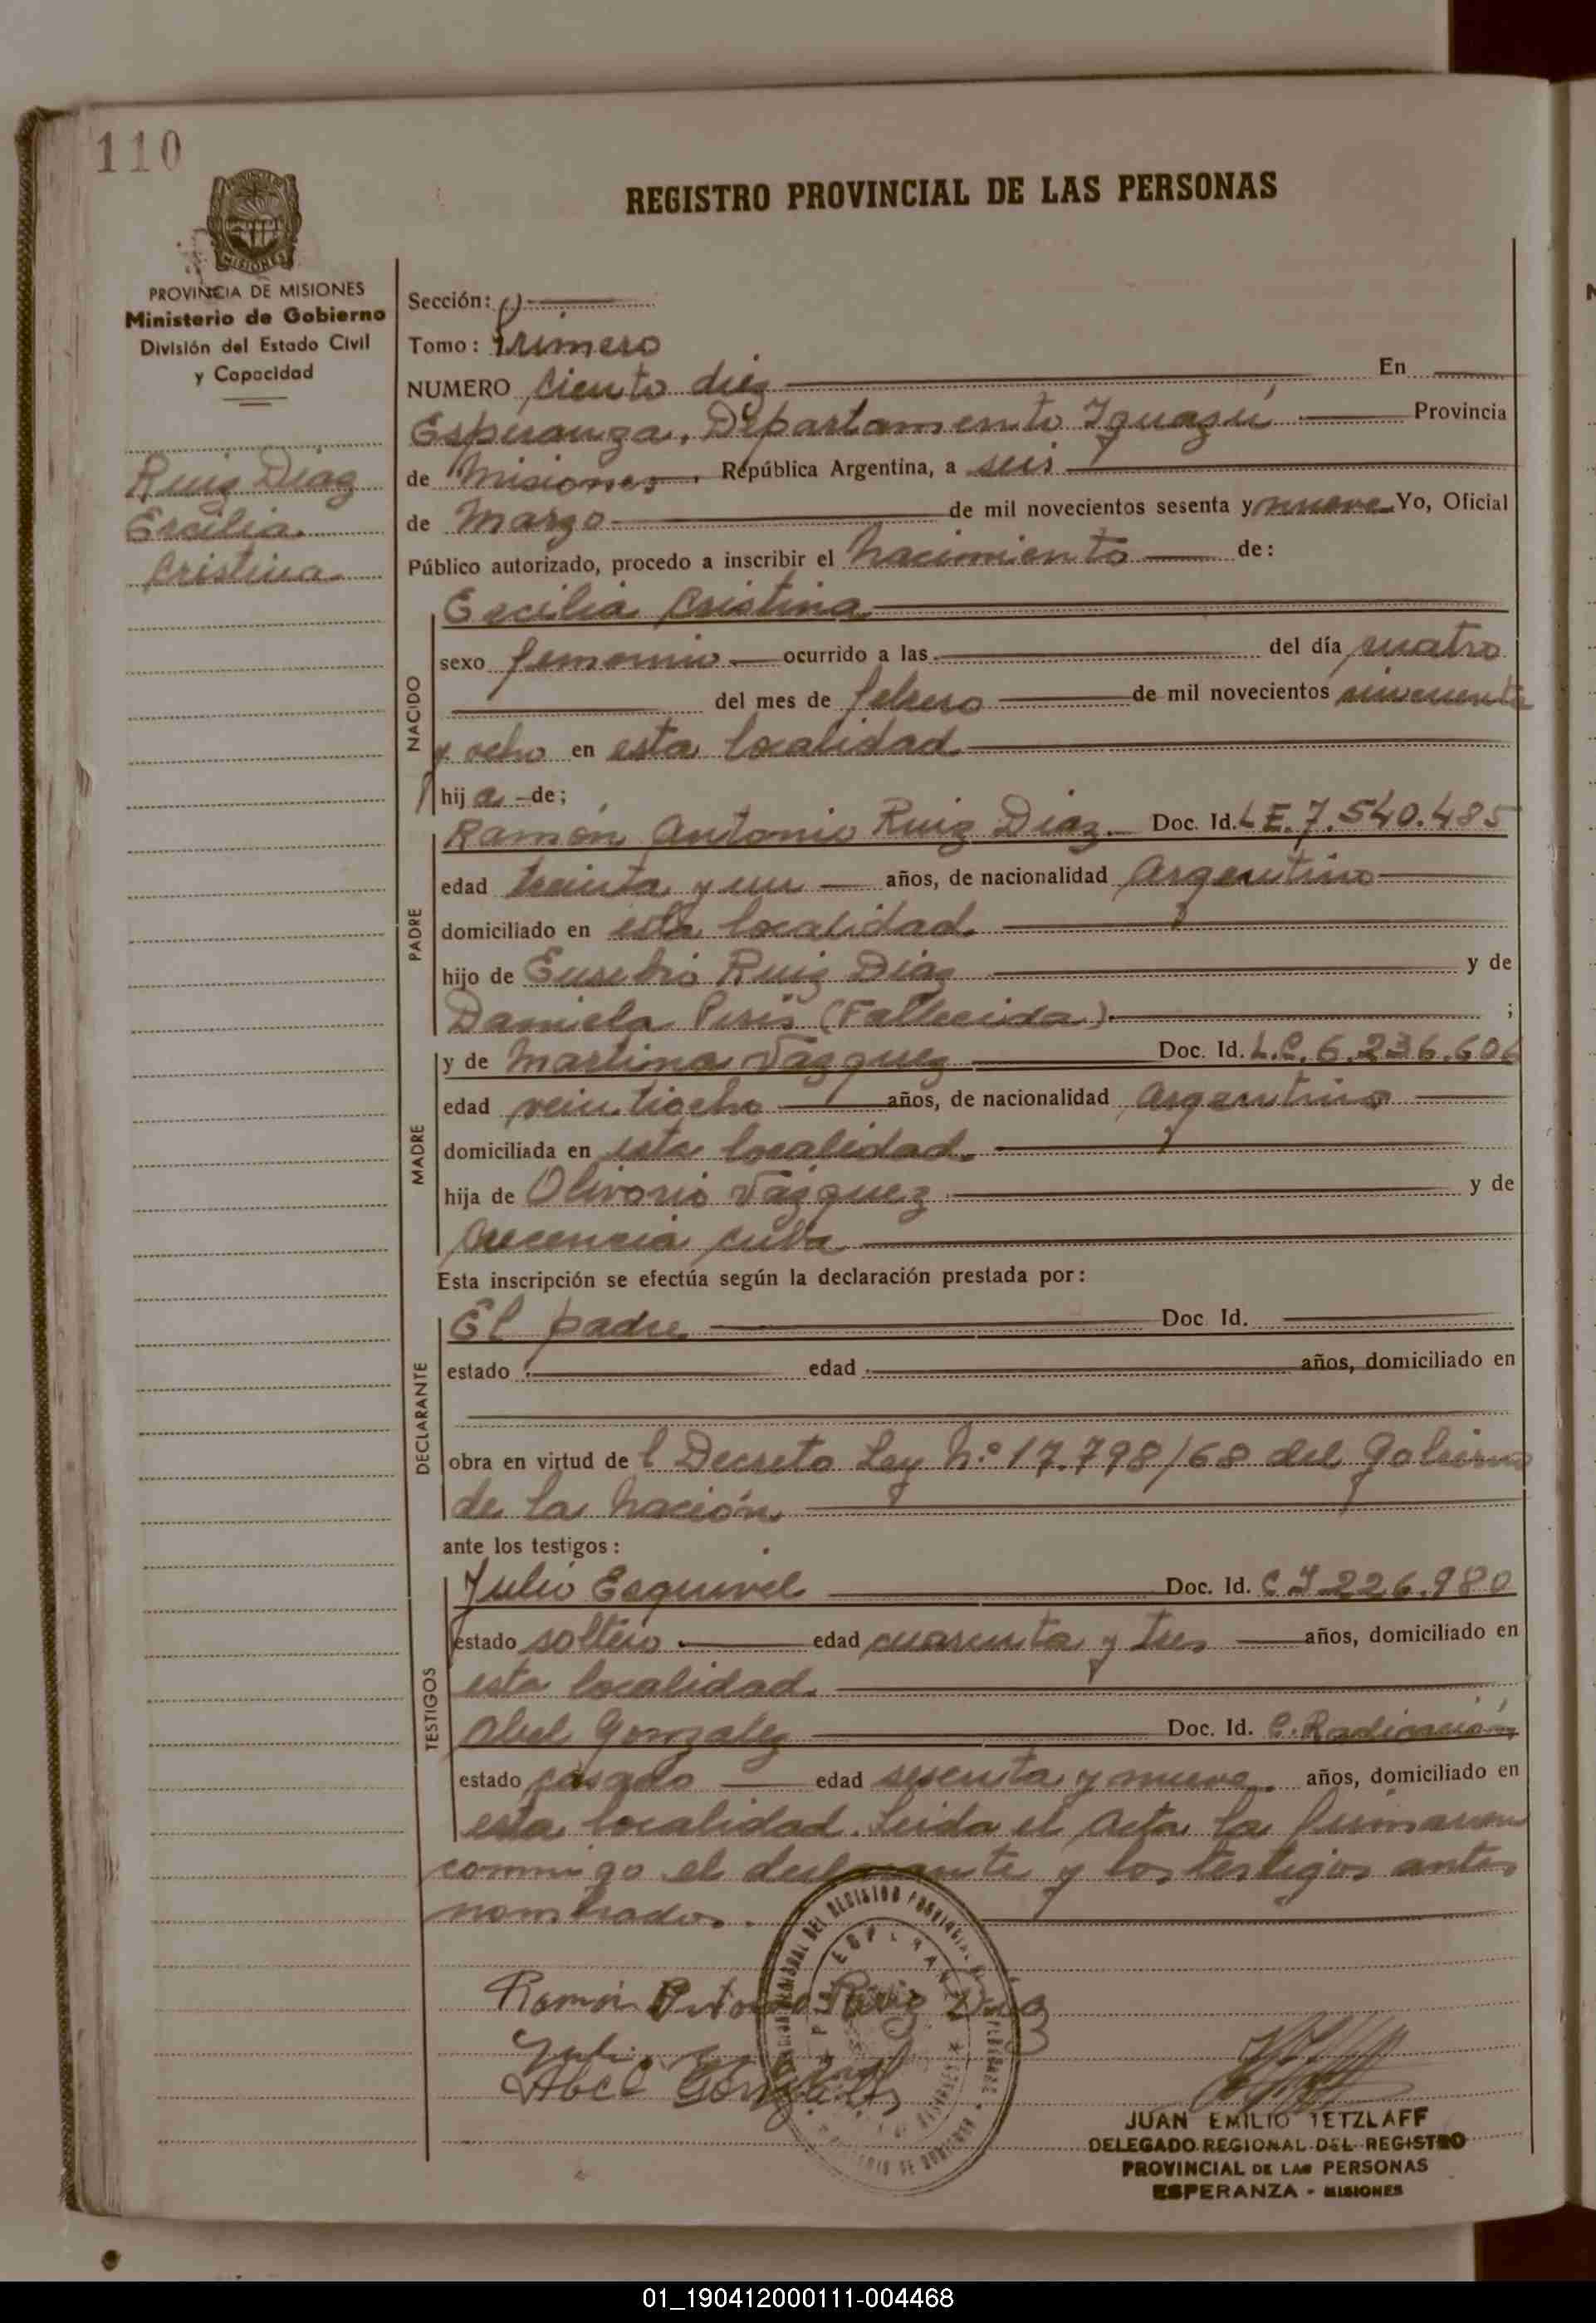 110
MISIONES
REGISTRO PROVINCIAL DE LAS PERSONAS
PROVINCIA DE MISIONES
Ministerio de Gobierno
División del Estado Civil
y Capacidad
Ruiz Diaz
Ercilia
Cristina
Sección:
Tomo: Primero
NUMERO Ciento diez En
Esperanza, Departamento Iguazú Provincia
de Misiones, República Argentina, a seis
de Marzo de mil novecientos sesenta y nueve Yo, Oficial
Público autorizado, procedo a inscribir el nacimiento de:
NACIDO
Ercilia Cristina
sexo femenino ocurrido a las del día cuatro
del mes de febrero de mil novecientos cincuenta
y ocho en esta localidad
hij a de;
PADRE
Ramón Antonio Ruiz Diaz. Doc. Id. L E. 7.540.485
edad treinta y un años, de nacionalidad Argentino
domiciliado en esta localidad.
hijo de Eusebio Ruiz Diaz y de
Daniela (Fallecida) ;
MADRE
y de Martina Vázquez Doc. Id. L.C. 6.236.606
edad veintiocho años, de nacionalidad argentino
domiciliada en esta localidad.
hija de Olivorio Vázquez y de
Esta inscripción se efectúa según la declaración prestada por:
DECLARANTE
El padre Doc Id.
estado edad años, domiciliado en
obra en virtud de l Decreto Ley N.º 17.798/68 del Gobierno
de la Nación
ante los testigos:
TESTIGOS
Julio Esquivel Doc. Id. C I 226.980
estado soltero edad cuarenta y tres años, domiciliado en
esta localidad.
Abel Gonzalez Doc. Id. C. Radicación
estado casado edad sesenta y nueve años, domiciliado en
esta localidad. Leida el Acta la firmaron
conmigo el declarante y los testigos antes
nombrados.
Ramón Antonio Ruiz Diaz
Julio
Abel Gonzalez
JUAN EMILIO TETZLAFF
DELEGADO REGIONAL DEL REGISTRO
PROVINCIAL DE LAS PERSONAS
ESPERANZA - MISIONES
01_190412000111-004468